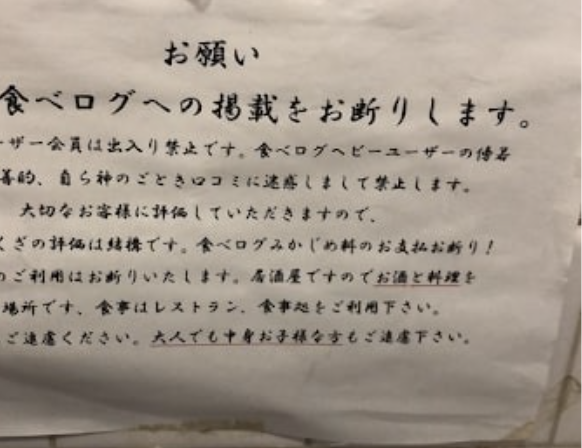 お願い
食べログへの掲載をお断りします。
ーザー会員は出入り禁止です。食べログヘビーユーザーの傍若
善的、自ら神のごとき口コミに迷惑しまして禁止します。
大切なお客様に評価していただきますので、
くぎの評価は結構です。食べログみかじめ料のお支払お断り!
のご利用はお断りいたします。居酒屋ですのでお酒と料理を
場所です、食事はレストラン、食事処をご利用下さい。
ご遠慮ください。大人でも中身お子様な方もご遠慮下さい。